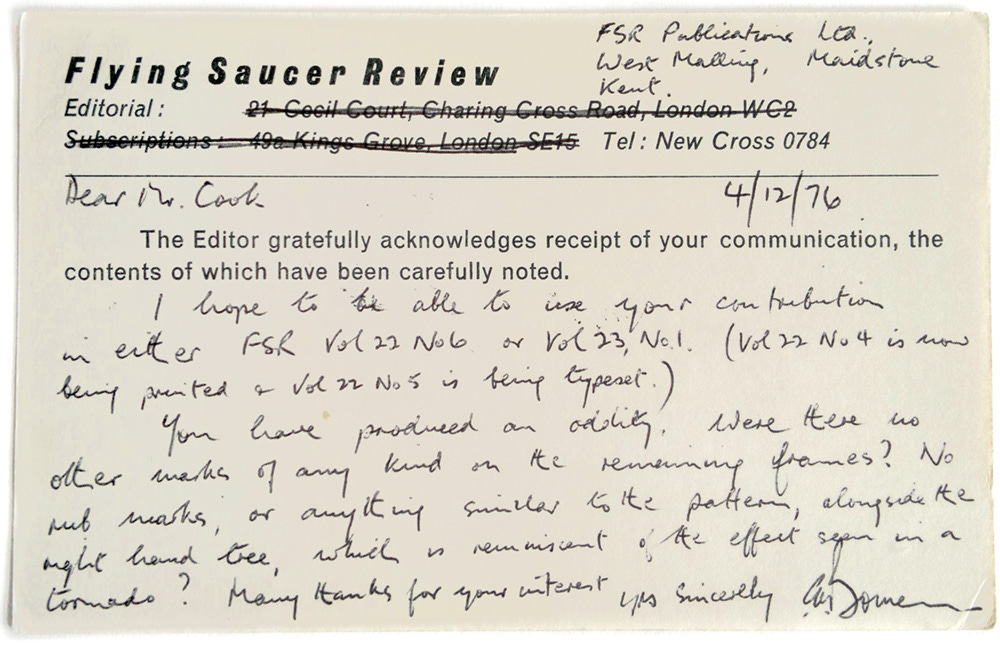 FSR Publications Ltd.,
West Malling, Maidstone
Kent.
Flying Saucer Review
Editorial: 21 Cecil Court, Charing Cross Road, London WC2
Subscriptions: 49a Kings Grove, London SE15 Tel: New Cross 0784
Dear Mr. Cook 4/12/76
The Editor gratefully acknowledges receipt of your communication, the
contents of which have been carefully noted.
I hope to be able to use your contribution
in either FSR Vol 22 No 6 or Vol 23, No. 1. (Vol 22 No 4 is now
being printed & Vol 22 No 5 is being typeset.)
You have produced an oddity. Were there no
other marks of any kind on the remaining frames? No
rub marks, or anything similar to the pattern, alongside the
right hand tree, which is reminiscent of the effect seen in a
tornado? Many thanks for your interest yrs sincerely